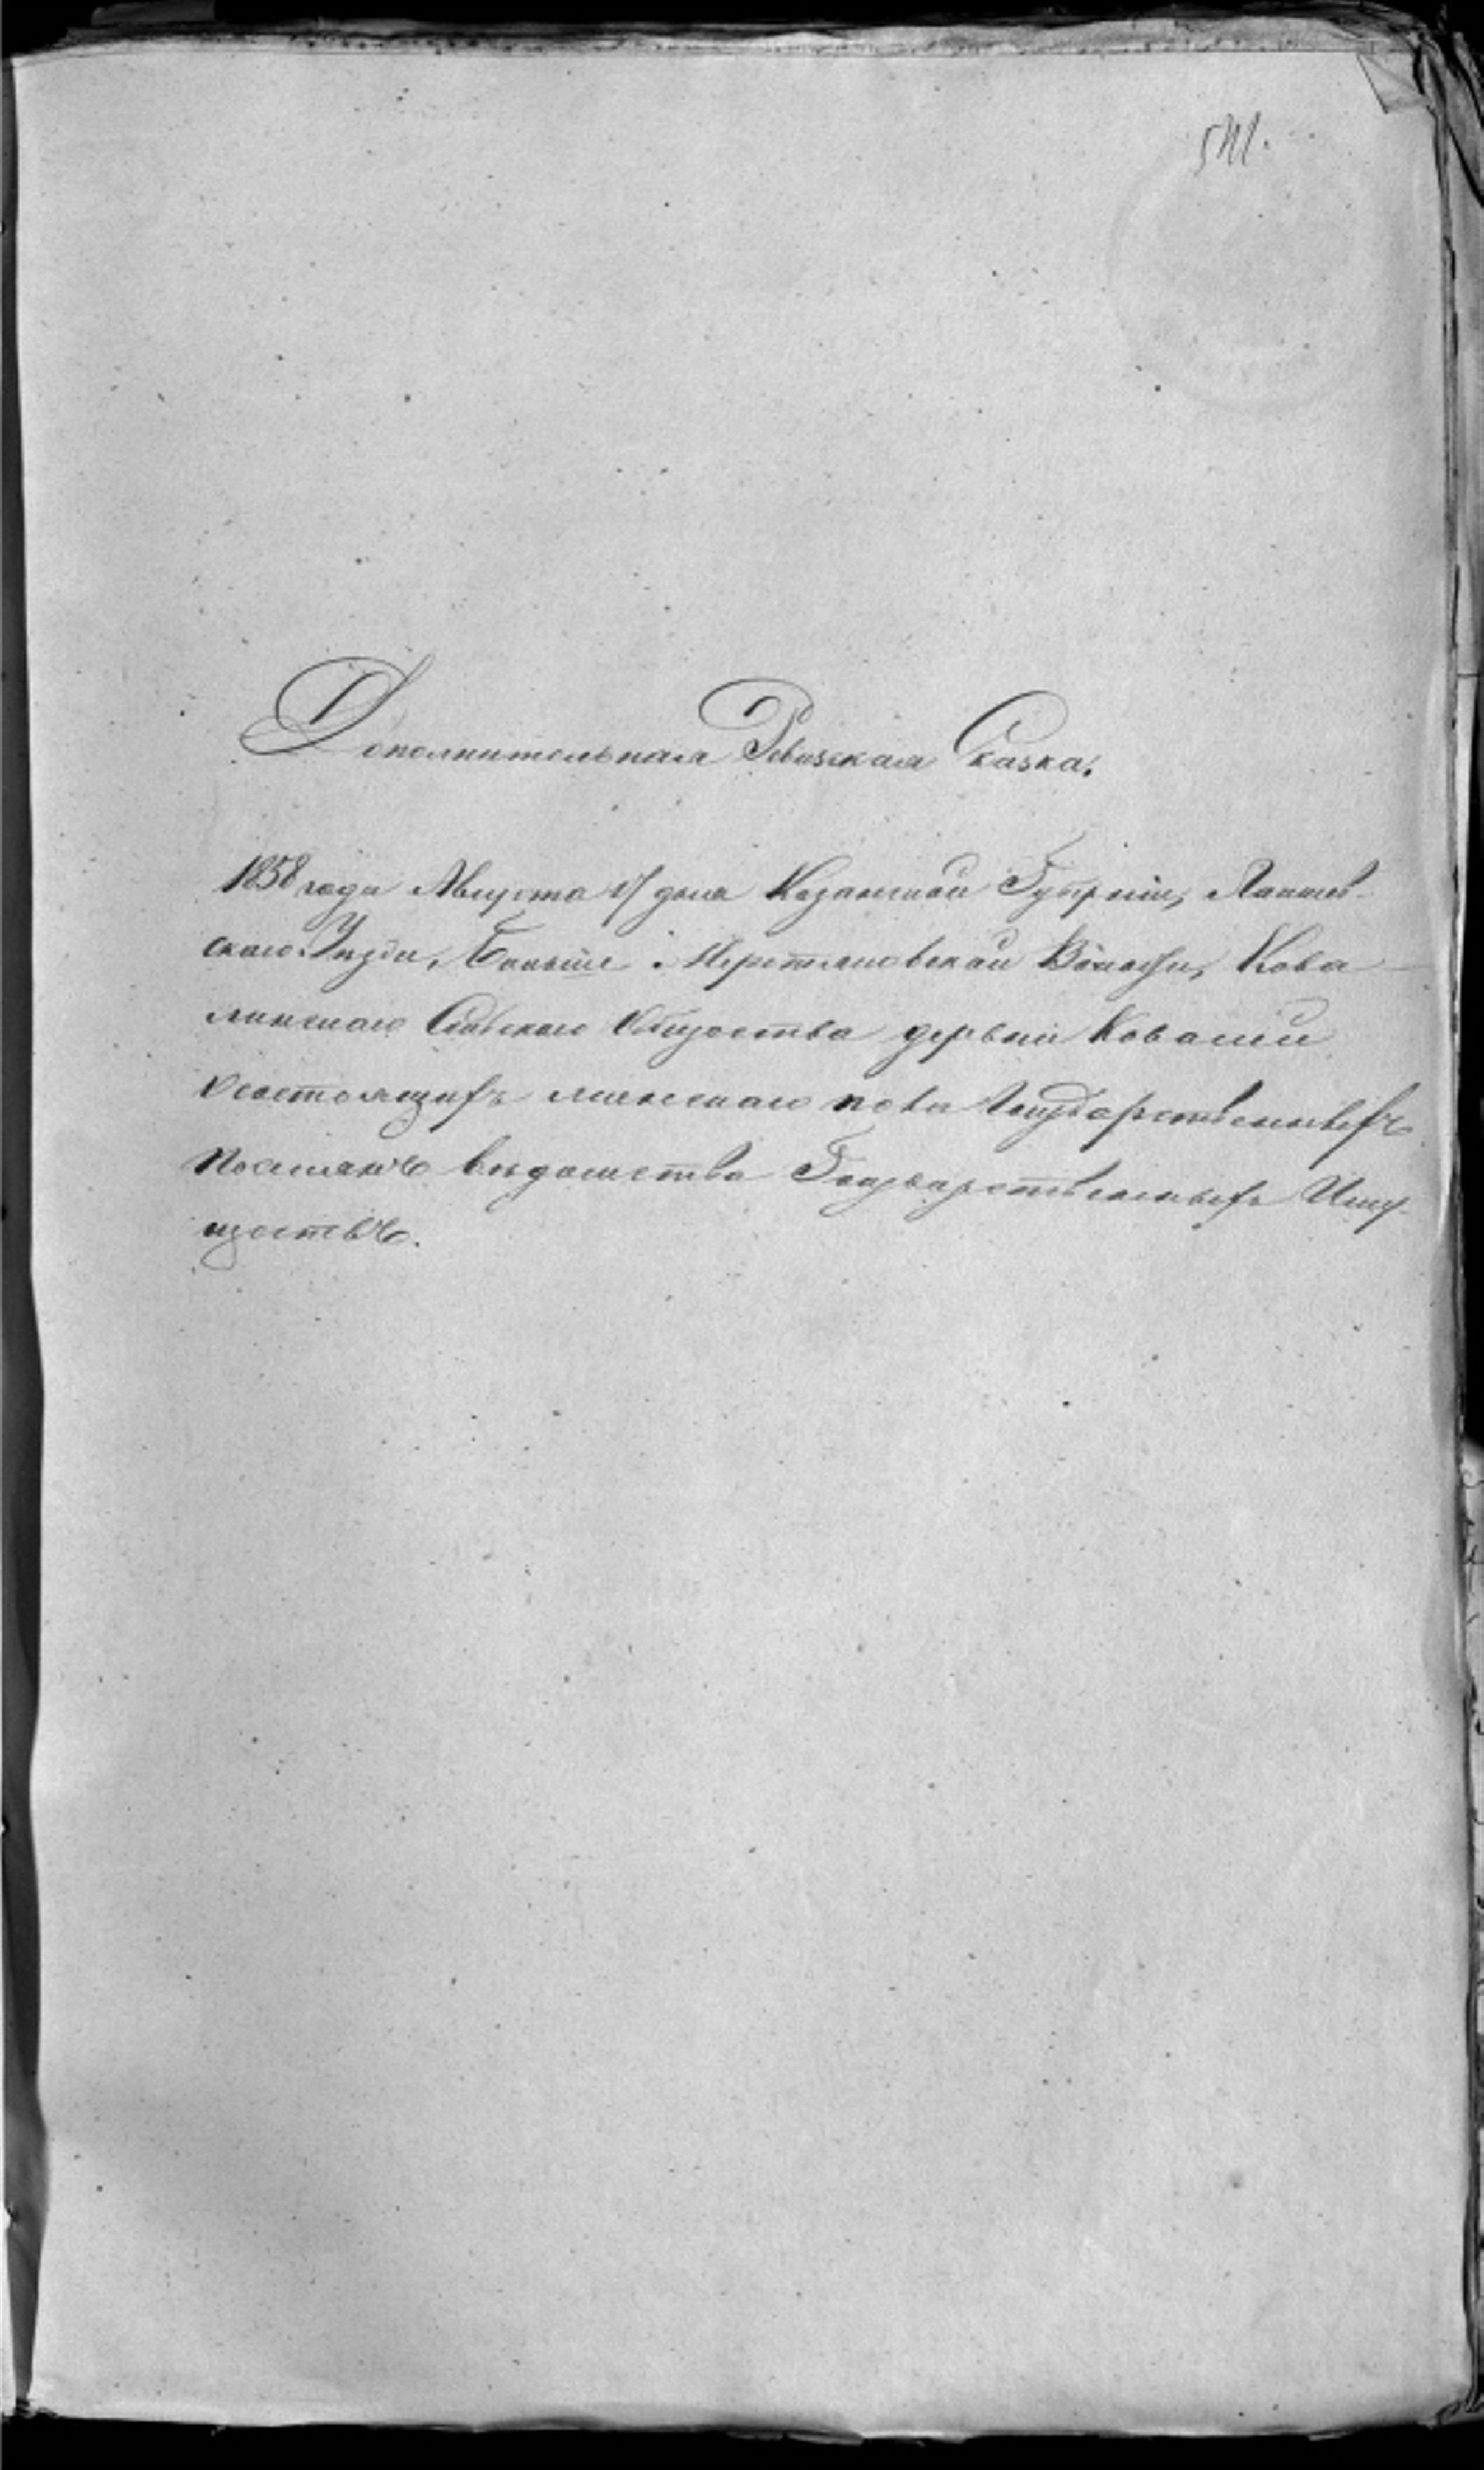 541.
Дополнительная Ревизская Сказка.
1858 года Августа дня Казанской Губерніи, Лаишев-
скаго Уѣзда, Больше Меретяковской Волости, Кова-
линскаго Сельскаго Общества деревни Ковалей
состоящихъ мужескаго пола Государственныхъ
Поселянъ вѣдомства Государственныхъ Иму-
ществъ.